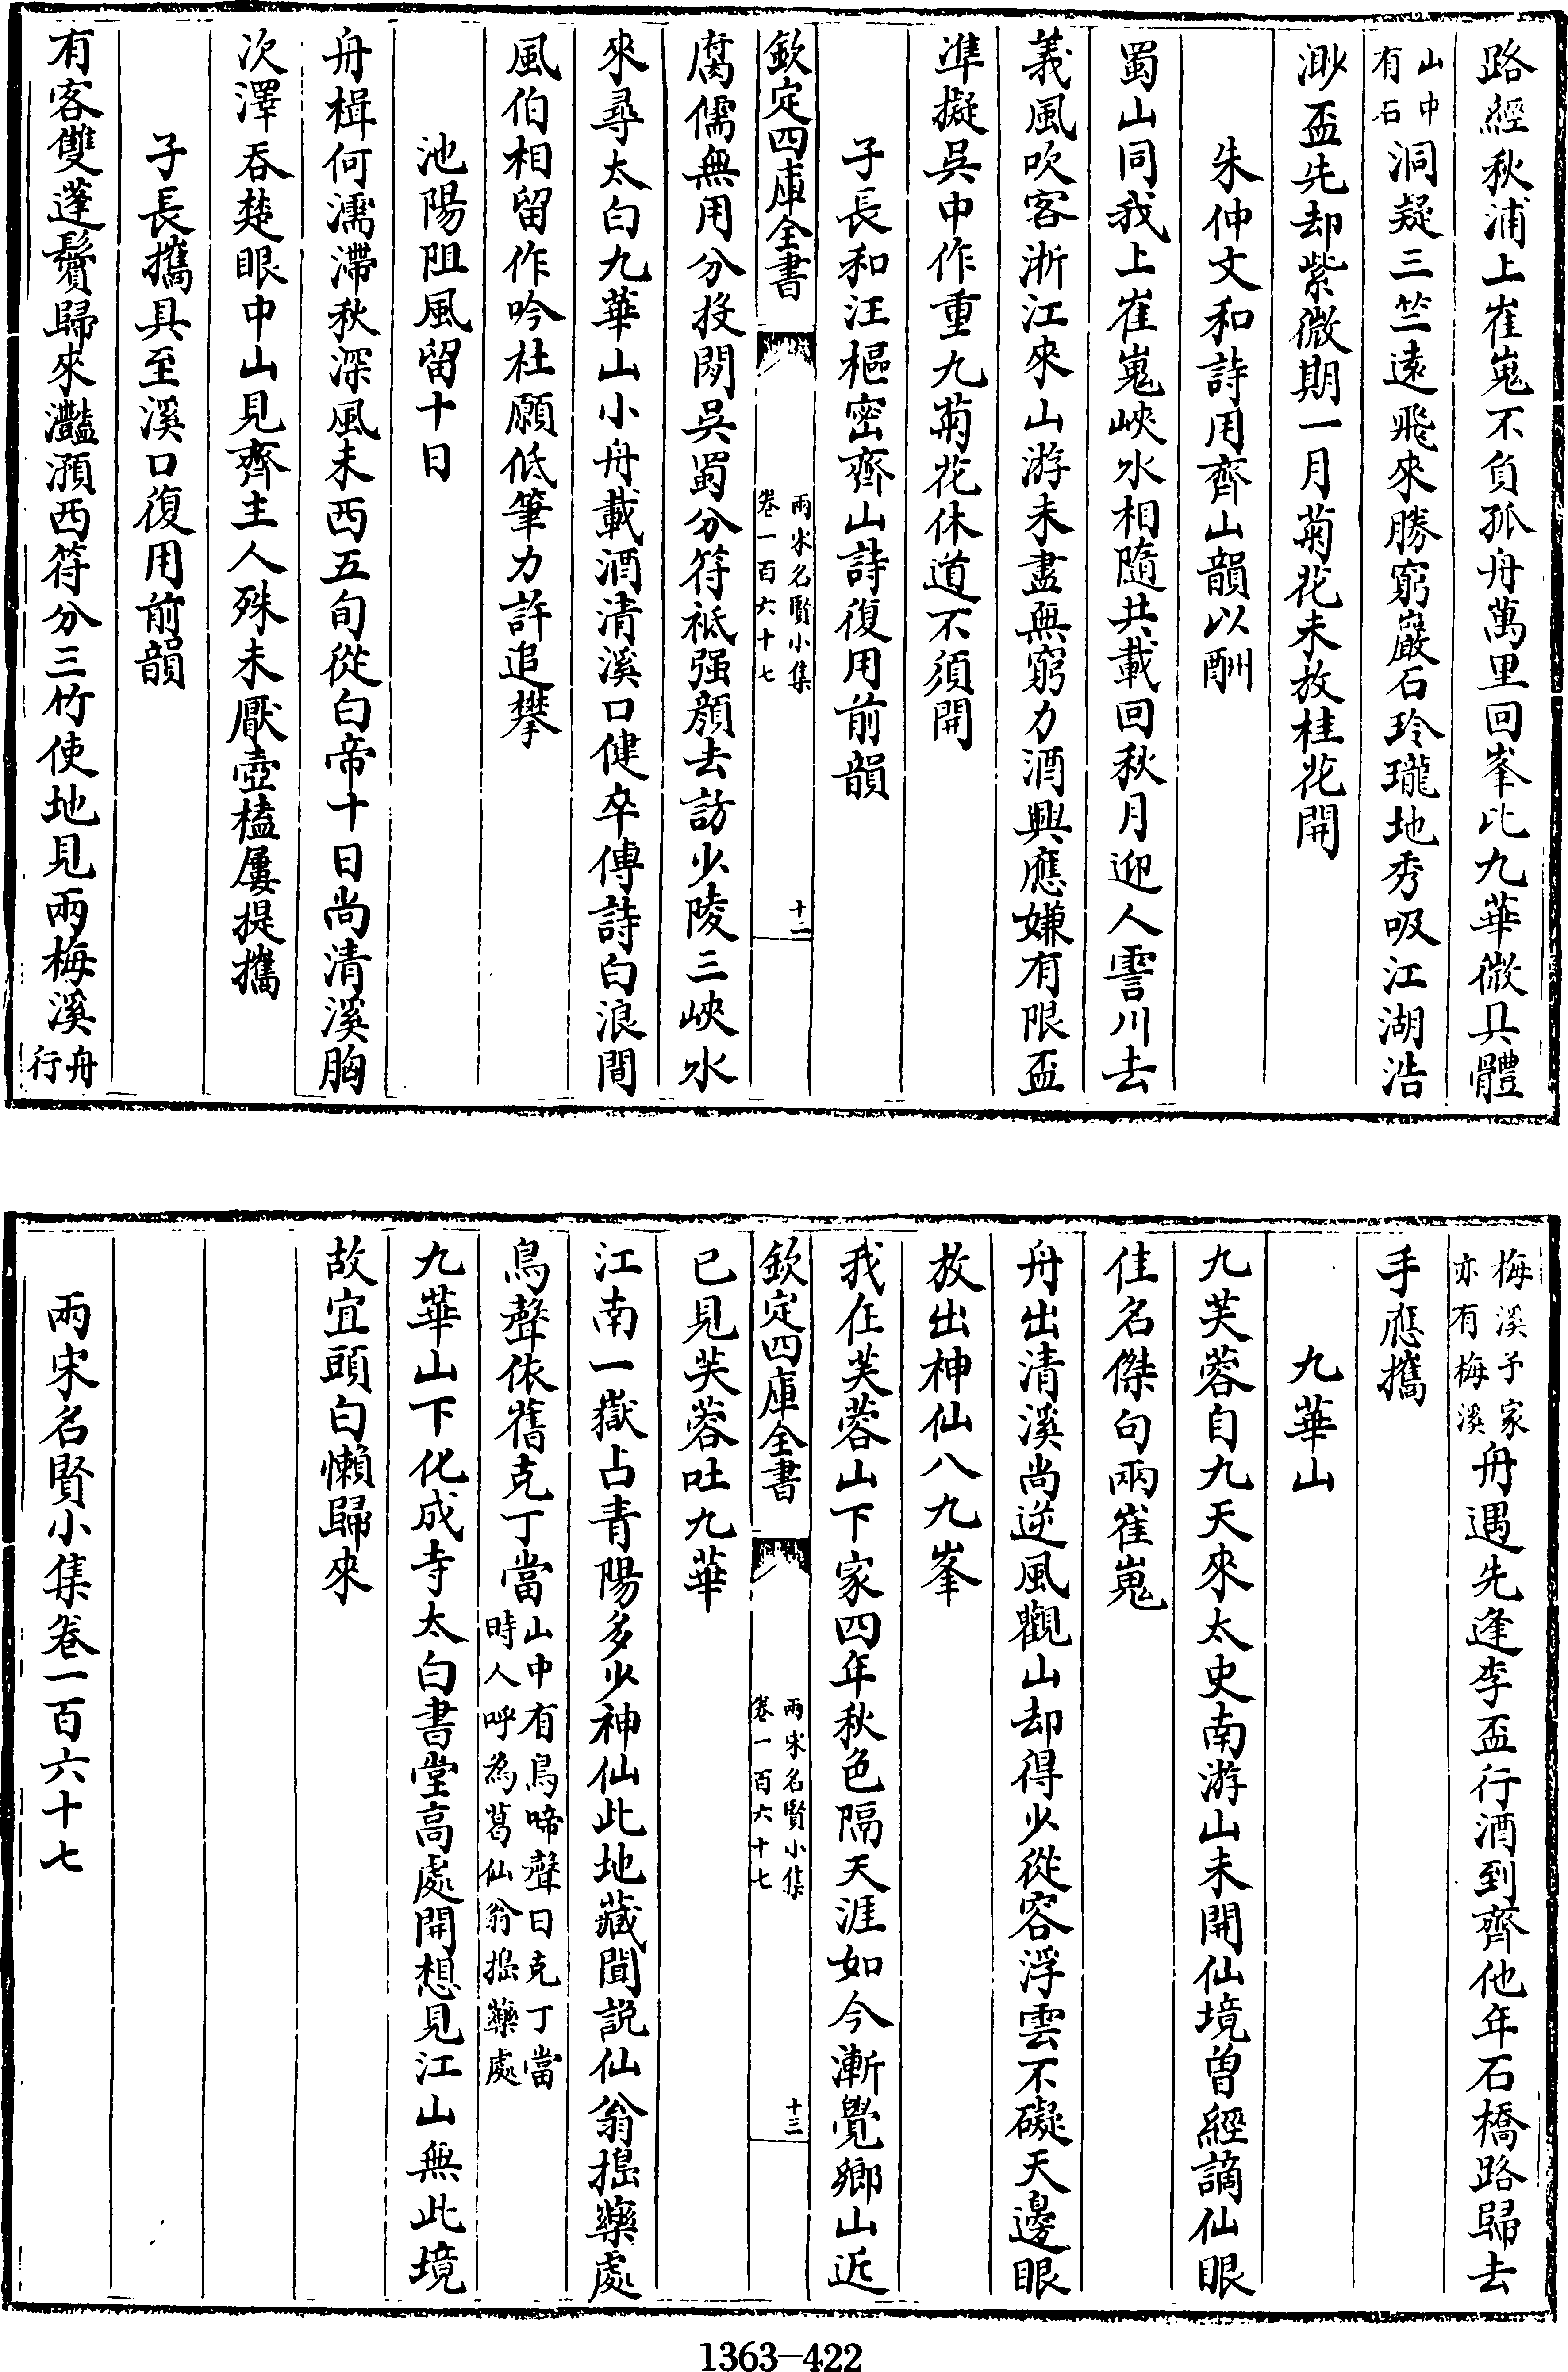 路經秋浦上崔嵬不負孤舟萬里回峯比九華微具體
山中有石洞疑三竺遠飛來勝窮巖石玲瓏地秀吸江湖浩
渺盃先却紫微期一月菊花未放桂花開
朱仲文和詩用齊山韻以酬
蜀山同我上崔嵬峽水相隨共載回秋月迎人霅川去
義風吹客浙江來山游未盡無窮力酒興應嫌有限盃
準擬吳中作重九菊花休道不須開
子長和汪樞密齊山詩復用前韻
欽定四庫全書
兩宋名賢小集
卷一百六十七
十二
腐儒無用分投閒吳蜀分符祗强顏去訪少陵三峽水
來尋太白九華山小舟載酒清溪口健卒傳詩白浪間
風伯相留作吟社願低筆力許追攀
池陽阻風留十日
舟楫何濡滯秋深風未西五旬從白帝十日尚清溪胸
次澤吞楚眼中山見齊主人殊未厭壺榼屢提攜
子長攜具至溪口復用前韻
有客雙蓬鬢歸來灩澦西符分三竹使地見兩梅溪舟行
梅溪予家亦有梅溪舟遇先逢李盃行酒到齊他年石橋路歸去
手應攜
九華山
九芙蓉自九天來太史南游山未開仙境曾經謫仙眼
佳名傑句兩崔嵬
舟出清溪尚逆風觀山却得少從容浮雲不礙天邊眼
放出神仙八九峯
我在芙蓉山下家四年秋色隔天涯如今漸覺鄉山近
欽定四庫全書
兩宋名賢小集
卷一百六十七
十三
已見芙蓉吐九華
江南一嶽占青陽多少神仙此地藏聞説仙翁搗藥處
鳥聲依舊克丁當山中有鳥啼聲曰克丁當時人呼為葛仙翁搗藥處
九華山下化成寺太白書堂高處開想見江山無此境
故宜頭白懶歸來
兩宋名賢小集卷一百六十七
1363-422